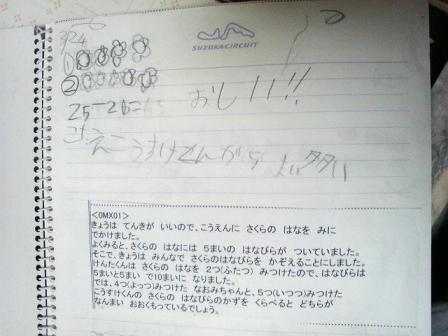 SUZUKA CIRCUIT
3/24
①
②
25-20=5
おしい!!
こうすけくんが5
<OMX01>
きょうは てんきが いいので、こうえんに さくらの はなを みに
でかけました。
よくみると、さくらの はなには 5まいの はなびらが ついていました。
そこで、きょうは みんなで さくらのはなびらを かぞえることにしました。
けんたくんは さくらの はなを 2つ(ふたつ) みつけたので、はなびらは
5まいと5まい で10まいに なりました。
では、4つ(よっつ)みつけた なおみちゃんと、5つ(いつつ)みつけた
こうすけくんの さくらの はなびらのかずを くらべると どちらが
なんまい おおくもっているでしょう。